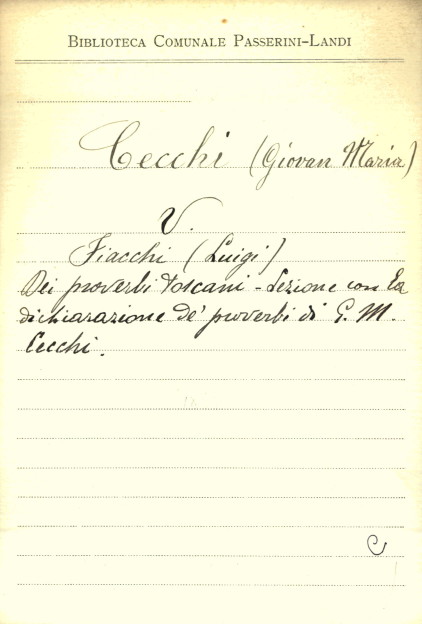 BIBLIOTECA COMUNALE PASSERINI-LANDI
Cecchi (Giovan Maria)
V.
Fiacchi (Luigi)
Dei proverbi toscani - Lezione con la
dichiarazione de' proverbi di G. M.
Cecchi.
C